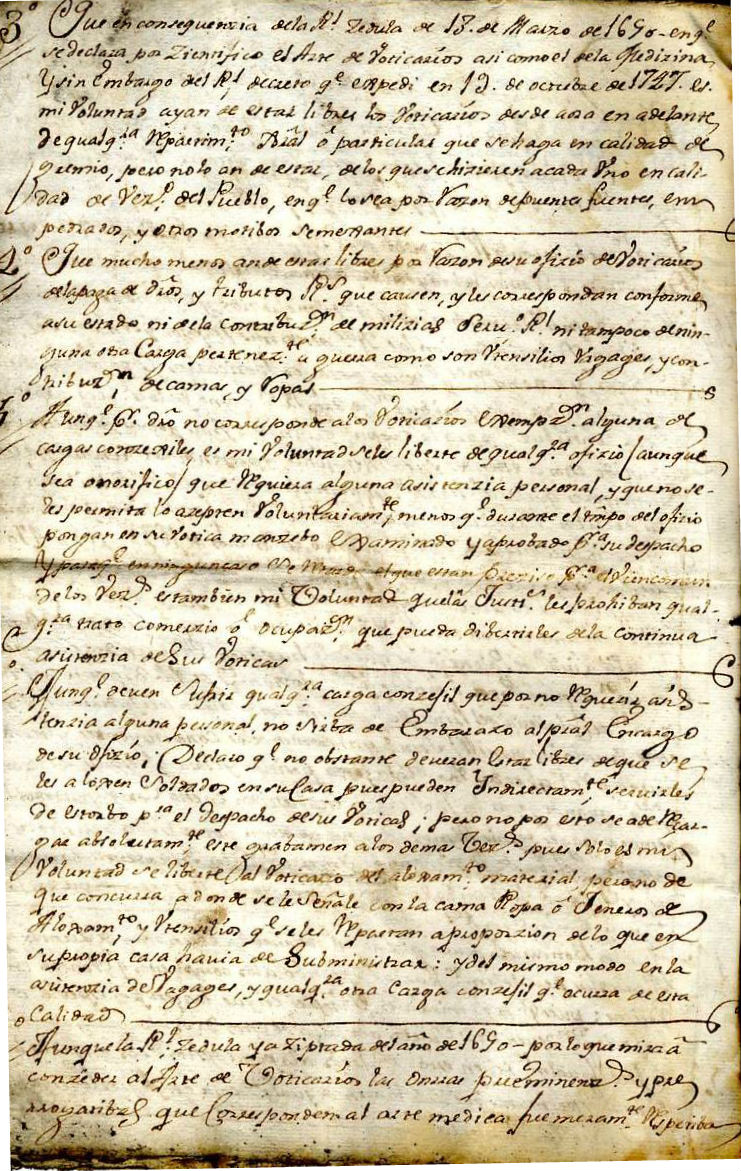 3º Que en consequenzia de la Rl Zedula de 13. de Marzo de 1650- en qe
se declara por Zientifico el Arte de Voticarios asi como el de la Medizina
Y sin Embargo del Rl decreto qe expedi en 13. de octubre de 1747. es
mi Voluntad ayan de estar libres los Voticarios desde aora en adelante
de qualqra Repartimto Rral ô particular que se haga en calidad de
gremio, pero no lo an de estar, de los que se hizieren a cada Vno en cali-
dad de Vezo del Pueblo, en qe lo sea por Razon de puentes fuentes, em
pedrados, y otros motibos semexantes
4º Que mucho menos an de estar libres por Razon de su ofizio de Voticarios
de la paga de dros, y tributos Rs que causen, y les correspondan conforme
a su estado, ni de la contribuzon de milizias Rl ni tampoco de nin-
guna otra Carga pertenezte a guerra como son Vtensilios Vagages, y con-
tribuzon de camas, y Ropas
Aunqe pr dro no corresponde a los Voticarios exempzon alguna de
cargas conzexiles, es mi Voluntad se les liberte de qualqra ofizio (aunque
sea onorifico) que Requiera alguna asistenzia personal, y que no se-
les permita lo azepten Voluntariamte, menos qe durante el tmpo del ofizio
pongan en su Votica manzebo examinado y aprobado pra su despacho
Y paraqe en ningun caso se el que estan pra el Vien comun
de los Vezs es tambien mi Voluntad que las Justas les prohiban qual-
qra trato comerzio ô ocupazon que pueda dibertirles de la continua
asistenzia de Sus Voticas
Aunqe deven Sufrir qualqra carga conzejil que por no Requerir asis-
tenzia alguna personal, no sirba de Embarazo al pral Encargo
de su Ofizio; Declaro qe no obstante deveran Estar libres de que se
les aloxen Soldados en su Casa pues pueden Yndirectamte servirles
de estorbo pra el despacho de sus Voticas; pero no por esto se a de
gar absolutamte este grabamen a los demas Vezs pues solo es mi
Voluntad se liberte al Voticario del aloxamto material pero no de
que concurra a donde se le Señale con la cama Ropa ô Jeneros de
Aloxamto y Vtensilios qe se les Repartan a proporzion de lo que en
su propia casa havia de Subministrar: y del mismo modo en la
asistenzia de Vagages, y qualqra otra Carga conzejil qe ocurra de esta
Calidad
Aunque la Rl Zedula ya zitada del año de 1650- por lo que mira â
conzeder al Arte de Voticarios las onrras preeminenzs y pre
rrogatibas que Corresponden al arte medica fue meramte